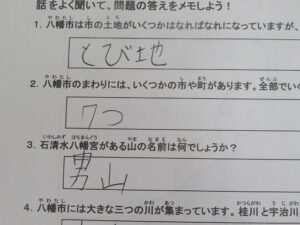 話をよく聞いて、問題の答えをメモしよう！
1. 八幡市は市の土地がいくつかはなればなれになっていますが、
とび地
2. 八幡市のまわりには、いくつかの市や町があります。全部でいく
7つ
3. 石清水八幡宮がある山の名前は何でしょうか？
男山
4. 八幡市には大きな三つの川が集まっています。桂川と宇治川